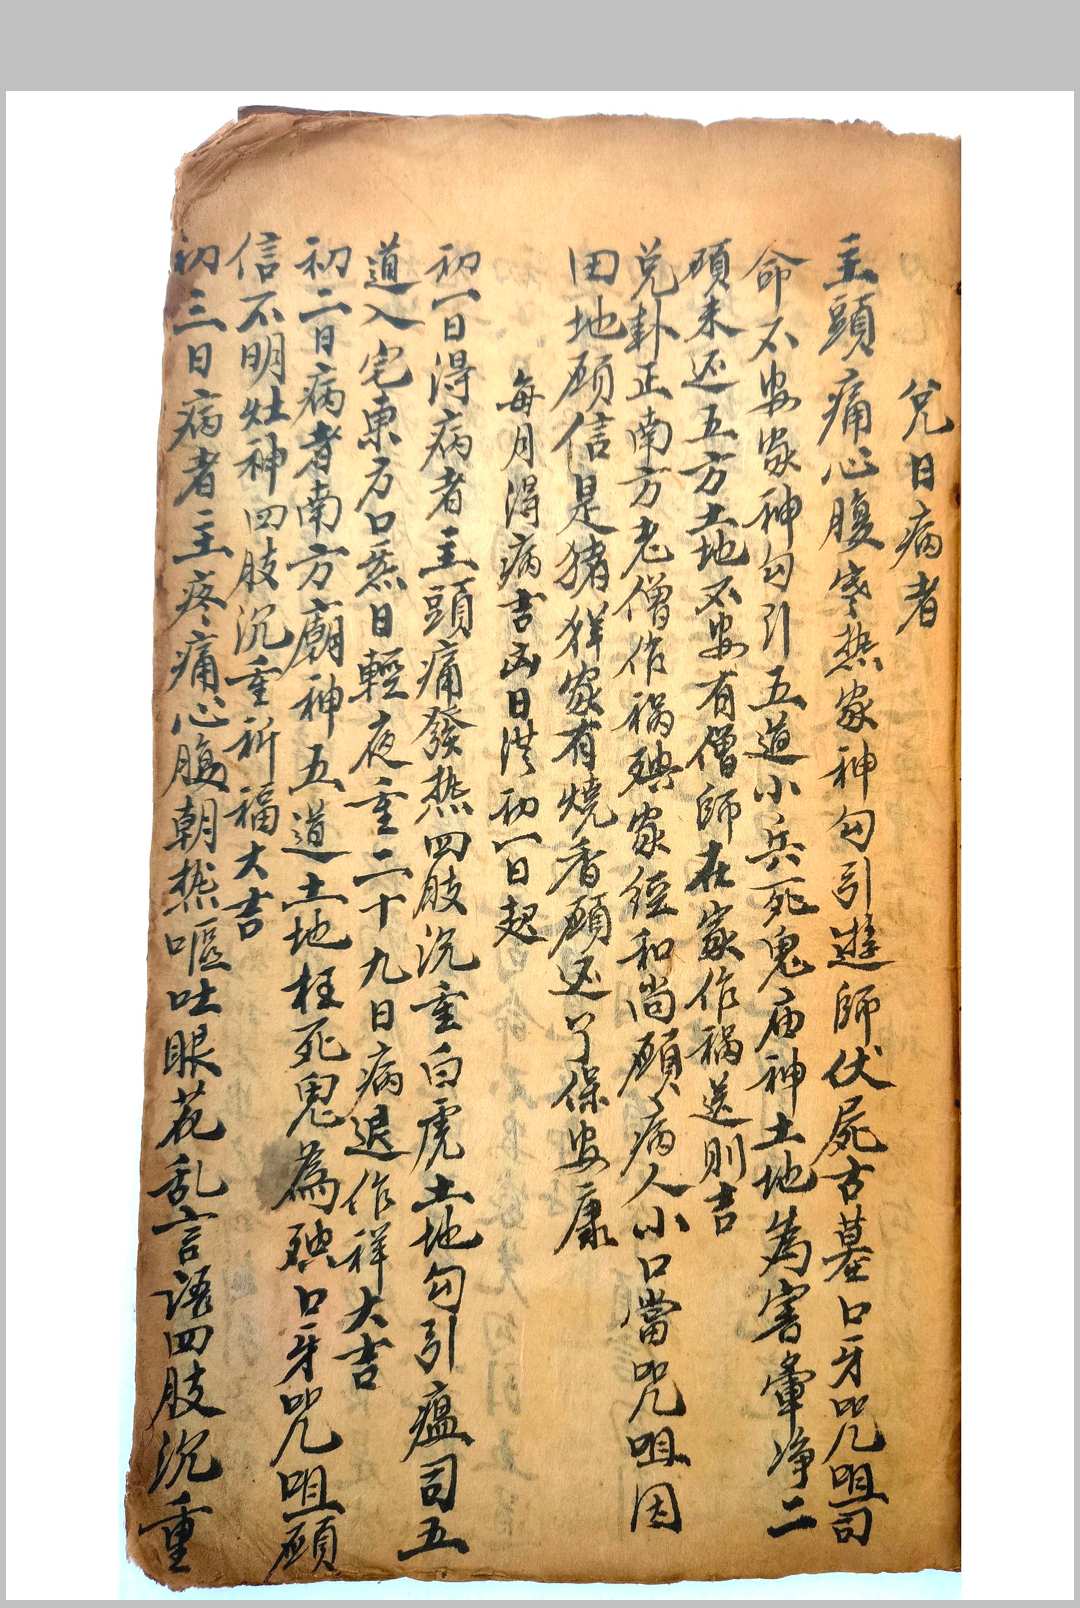 兌日病者
主頭痛心腹寒热家神勾引遊師伏屍古墓口牙咒咀司
命不安家神勾引五道小兵死鬼庙神土地為害輩净二
願未还五方土地不安有僧師在家作祸送則吉
兌卦正南方老僧作祸㛑家經和尚願病人小口當咒咀因
田地願信是猪羊家有燒香願还了保安康
每月得病吉凶日法初一日起
初一日得病者主頭痛發热四肢沉重白虎土地勾引瘟司五
道入宅東方口無日輕夜重二十九日病退作祥大吉
初二日病者南方廟神五道土地枉死鬼為㛑口牙咒咀願
信不明灶神四肢沉重祈福大吉
初三日病者主疼痛心腹朝热嘔吐眼花乱言語四肢沉重